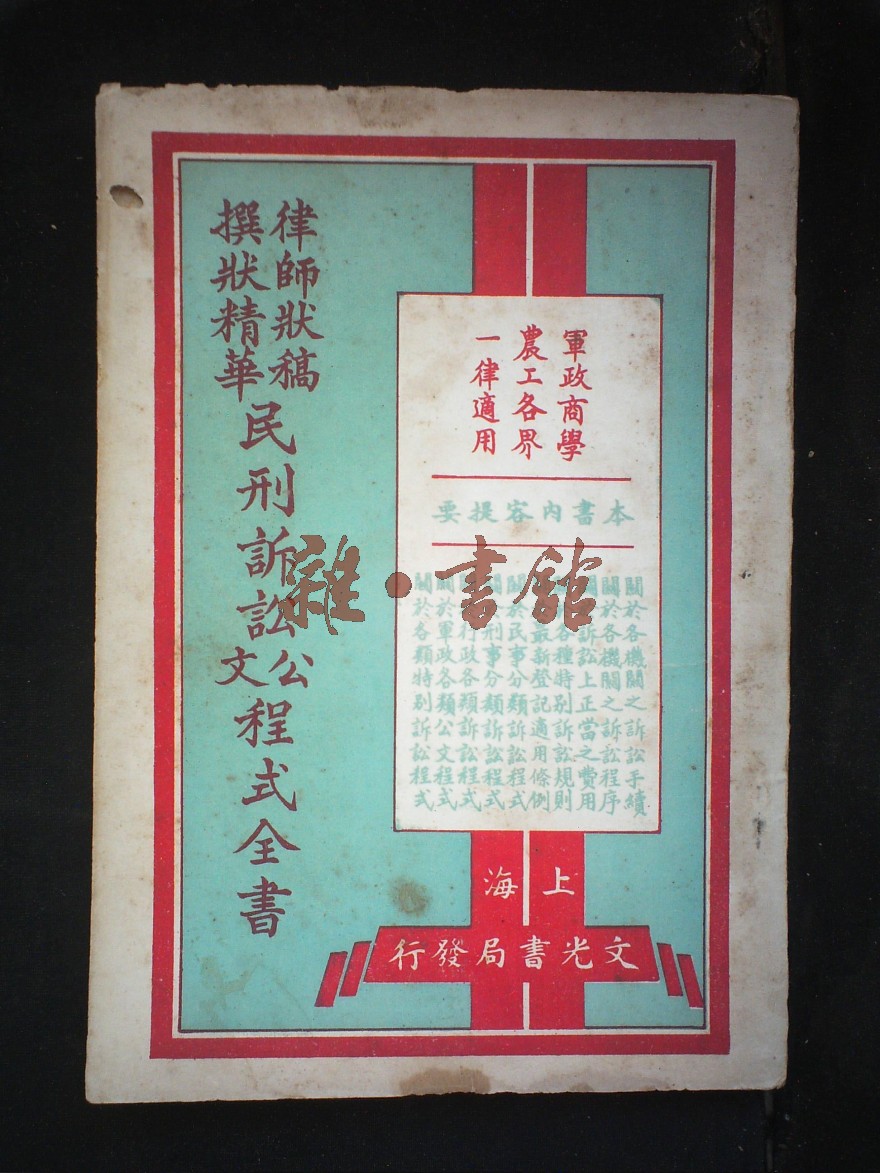 律師狀稿
撰狀精華
民刑訴訟公文程式全書
軍政商學
農工各界
一律適用
本書內容提要
關於各機關之訴訟手續
關於各機關之訴訟程序
訴訟上正當之費用
各種特別訴訟規則
最新登記適用條例
關於民事分類訴訟程式
刑事分類訴訟程式
行政各類訴訟程式
關於軍政各類公文程式
關於各類特別訴訟程式
上海
文光書局發行
雜·書館